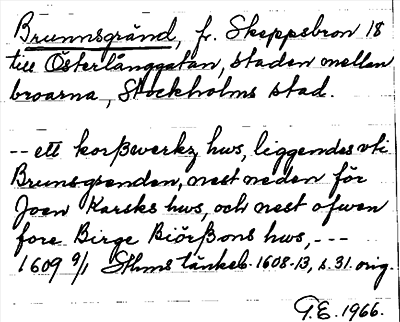 Brunnsgränd, fr. Skeppsbron 18
till Österlånggatan, staden mellan
broarna, Stockholms stad.
-- ett korßwerkz hws, liggendes vti
Brunsgrenden, nest neden för
Joen Karsks hws, och nest ofwen
fore Birge Biörßons hws, ---
1609 9/1 Sthms tänkeb. 1608-13, s. 31. orig.
G.E. 1966.